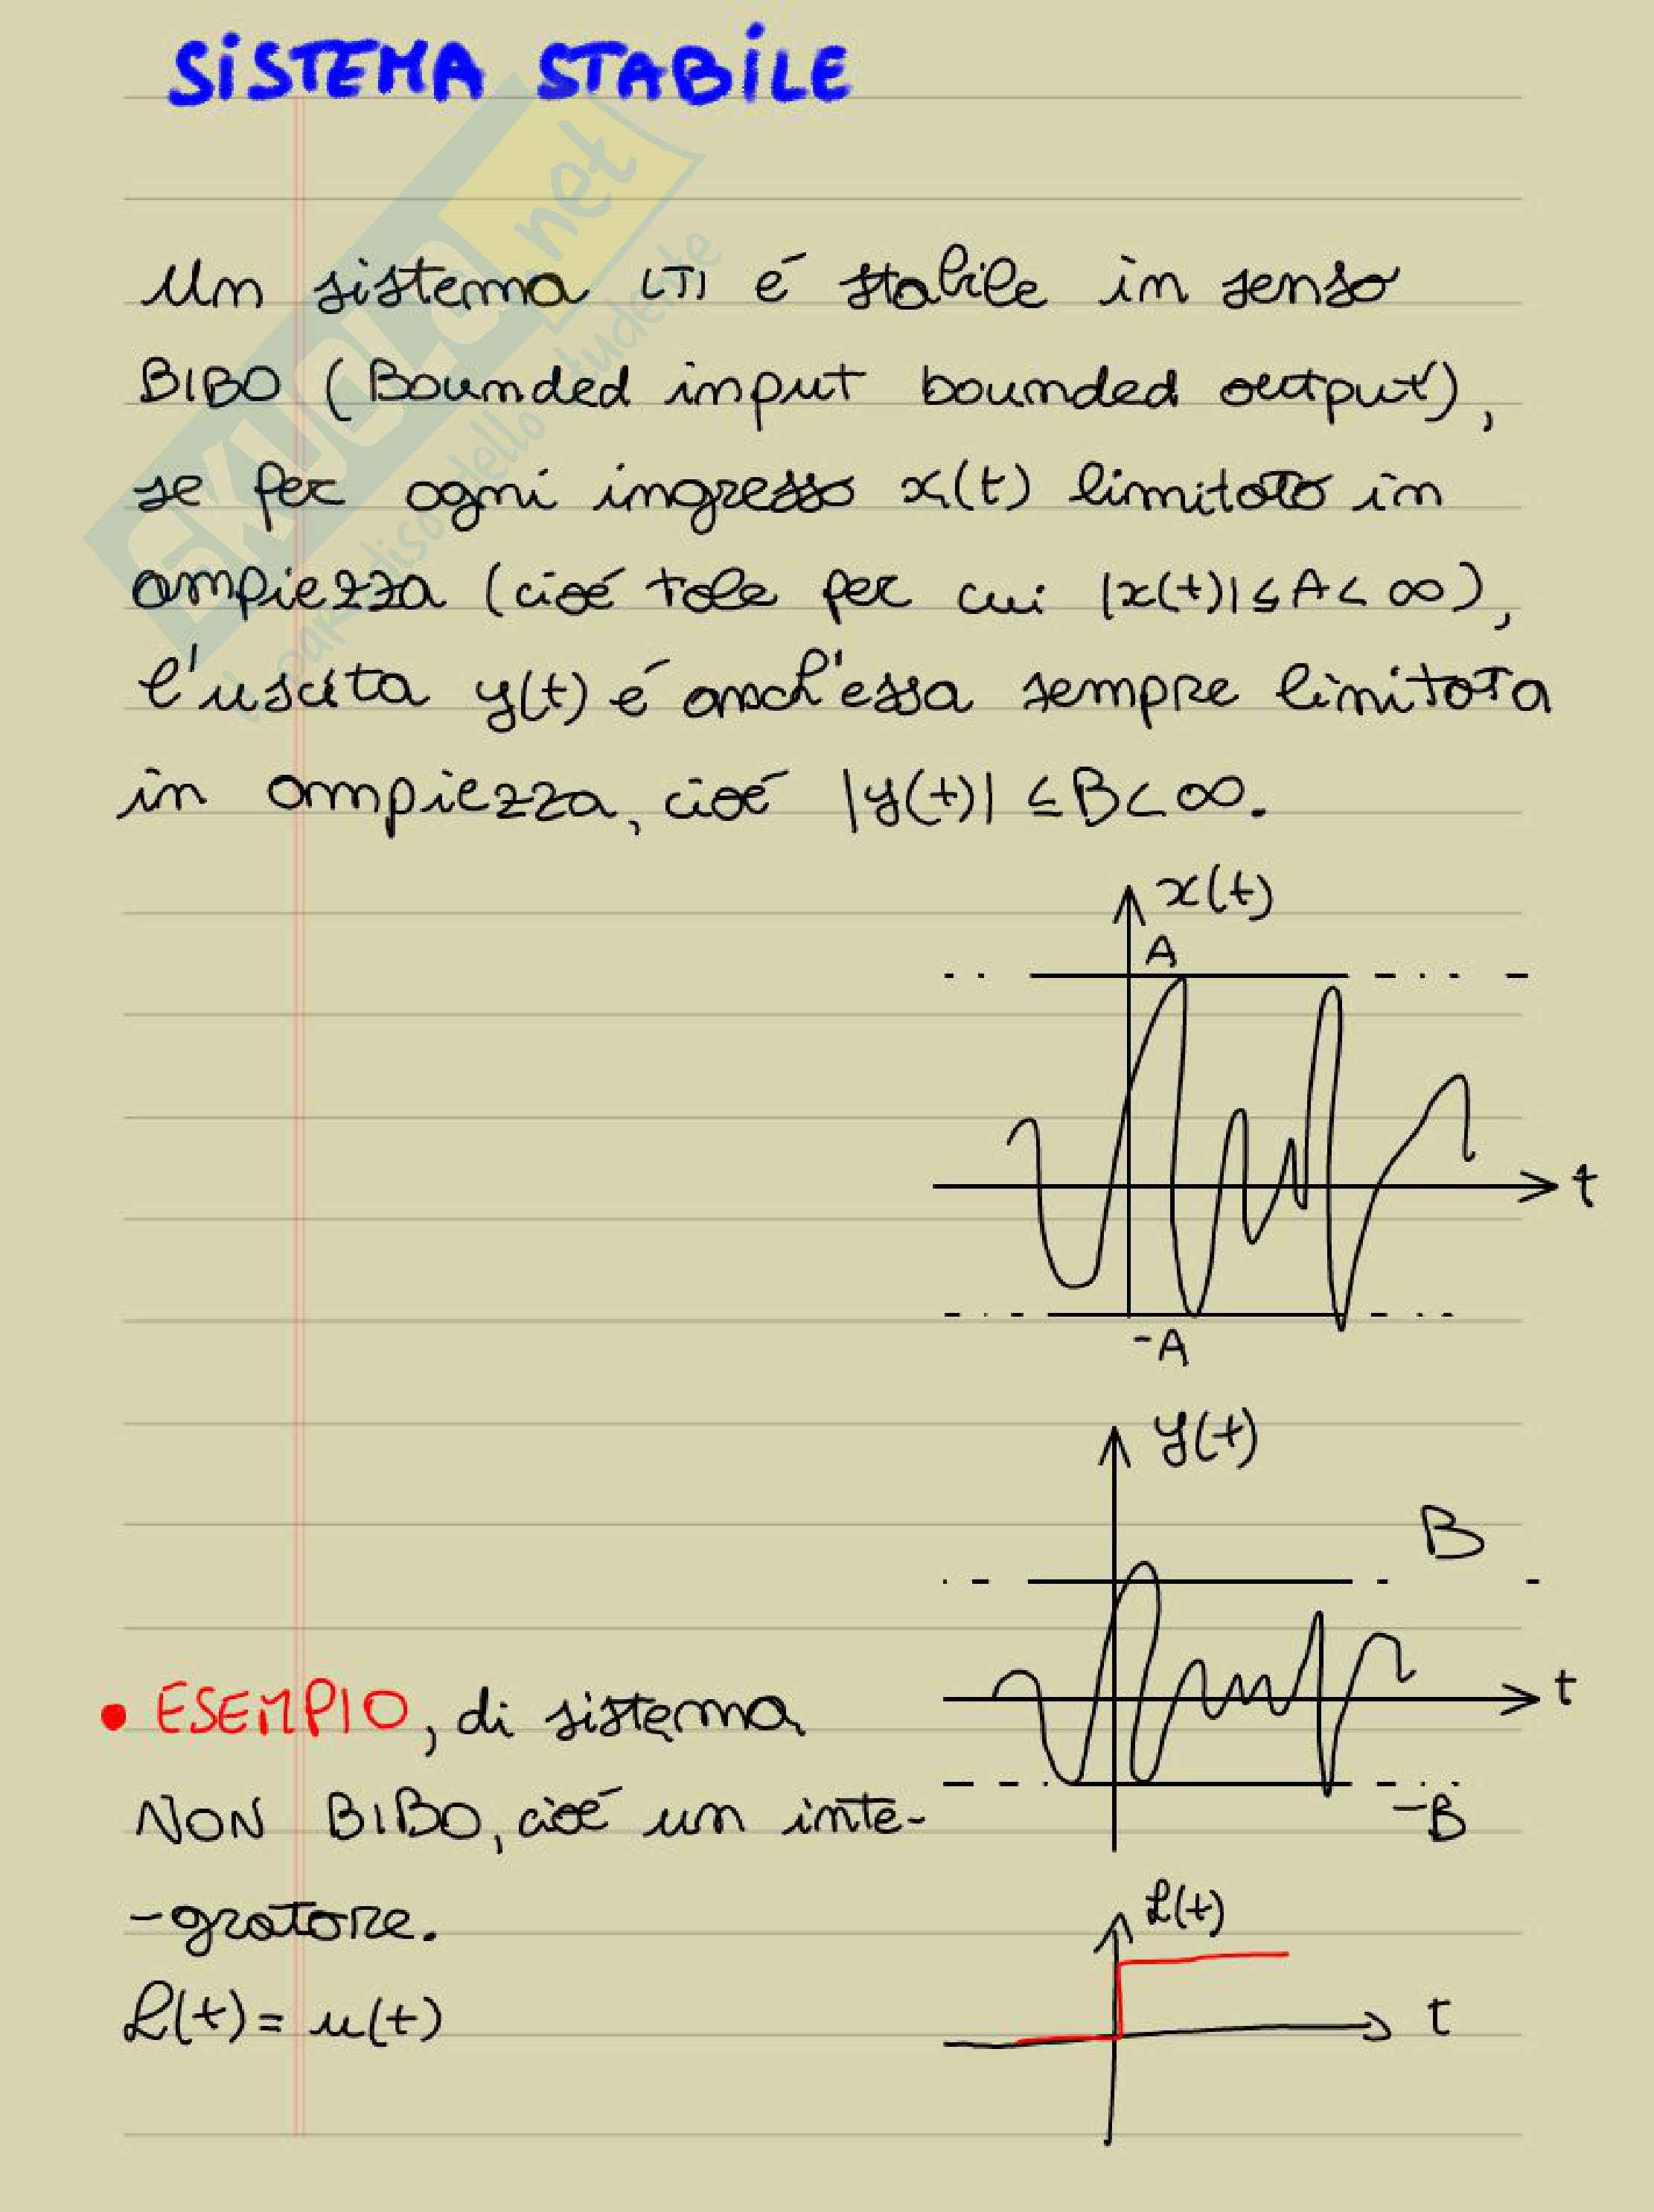 SISTEMA STABILE
SKUOLA.net
il paradiso dello studente
Un sistema LTI é stabile in senso
BIBO (Bounded input bounded output),
se per ogni ingresso x(t) limitato in
ampiezza (cioé tale per cui |x(t)| ≤ A < ∞),
l'uscita y(t) é anch'essa sempre limitata
in ampiezza, cioé |y(t)| ≤ B < ∞.
x(t)
A
t
-A
y(t)
B
t
-B
• ESEMPIO, di sistema
NON BIBO, cioé un inte-
-gratore.
h(t) = u(t)
h(t)
t